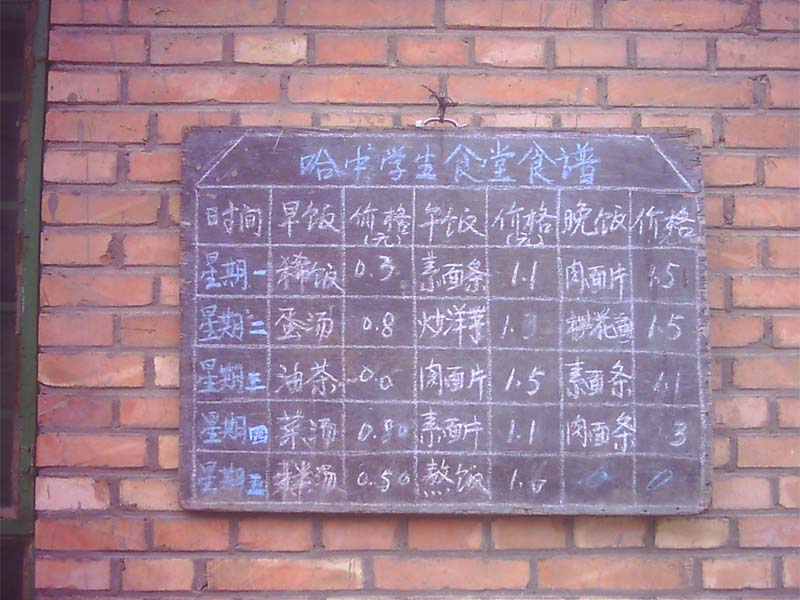 哈中学生食堂食谱
时间 早饭 价格(元) 午饭 价格(元) 晚饭 价格
星期一 稀饭 0.3 素面条 1.1 肉面片 1.5
星期二 蛋汤 0.8 炒洋芋 1.3 1.5
星期三 油茶 肉面片 1.5 素面条 1.1
星期四 菜汤 0.80 素面片 1.1 肉面条 1.3
星期五 0.50 熬饭 1.0 0 0